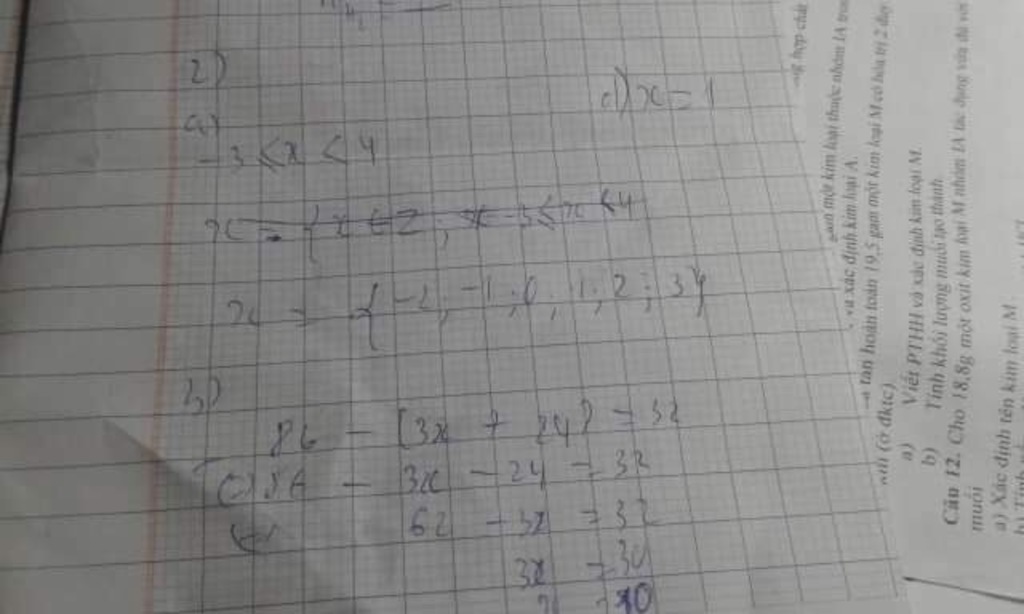 2)
a)
-3 < x < 4
x = { x ∈ Z ; x -3 < x < 4
x = { -2 ; -1 ; 0 ; 1 ; 2 ; 3 }
b)
86 - (3x + 24) = 32
86 - 3x - 24 = 32
62 - 3x = 32
3x = 30
10
d) x = 1
một kim loại thuộc nhóm IA
và xác định kim loại A.
tan hoàn toàn 19,5 gam một kim loại M có hóa trị 2
(ở đktc)
a) Viết PTHH và xác định kim loại M.
b) Tính khối lượng muối tạo thành.
Câu 12. Cho 18,8g một oxit kim loại M nhóm IA tác dụng vừa đủ với
muối
a) Xác định tên kim loại M